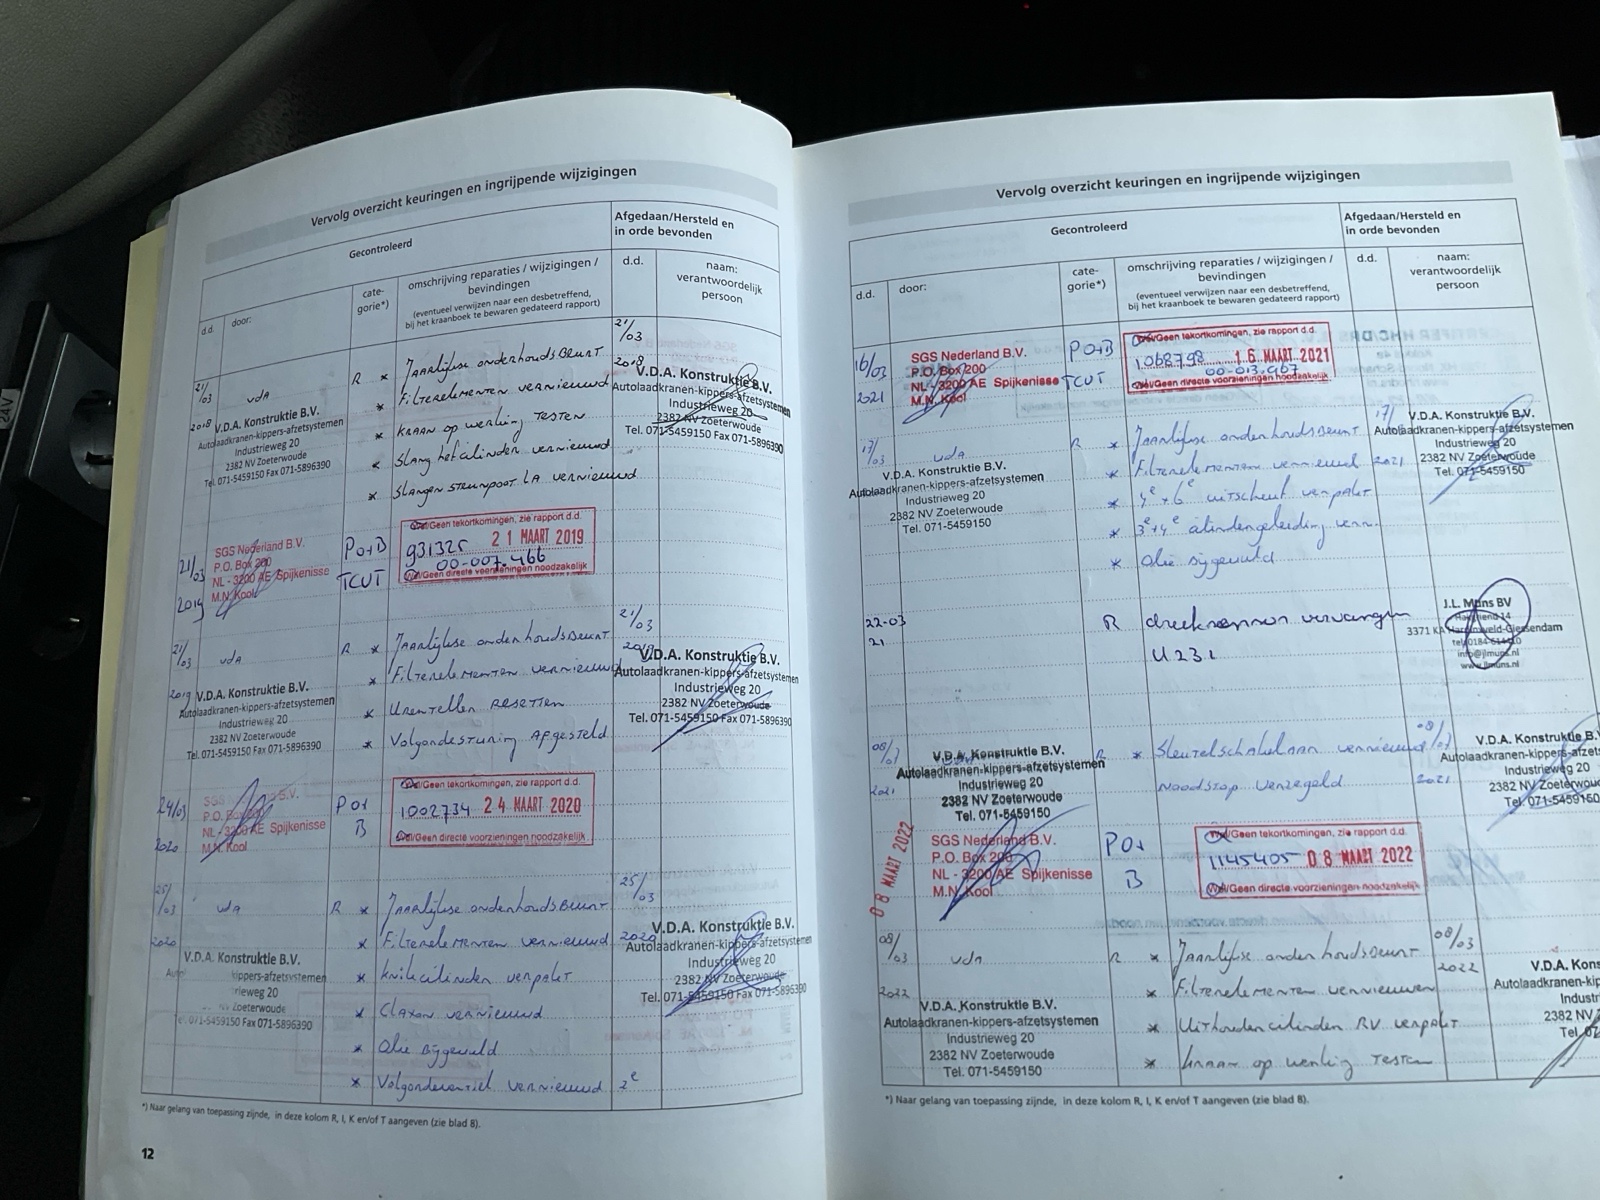 Vervolg overzicht keuringen en ingrijpende wijzigingen
Gecontroleerd
Afgedaan/Hersteld en
in orde bevonden
d.d.
door:
cate-
gorie*)
omschrijving reparaties / wijzigingen /
bevindingen
(eventueel verwijzen naar een desbetreffend,
bij het kraanboek te bewaren gedateerd rapport)
d.d.
naam:
verantwoordelijk
persoon
21/03
2018
vdA
V.D.A. Konstruktie B.V.
Autolaadkranen-kippers-afzetsystemen
Industrieweg 20
2382 NV Zoeterwoude
Tel. 071-5459150 Fax 071-5896390
R * Jaarlijkse onderhoudsbeurt
* Filterelementen vernieuwd
* Kraan op werking testen
* Slang hefcilinder vernieuwd
* Slangen steunpoot LA vernieuwd
21/03
2018
V.D.A. Konstruktie B.V.
Autolaadkranen-kippers-afzetsystemen
Industrieweg 20
2382 NV Zoeterwoude
Tel. 071-5459150 Fax 071-5896390
21/03
2019
SGS Nederland B.V.
P.O. Box 200
NL - 3200 AE Spijkenisse
M.N. Kool
PO+B
TCUT
Wel/Geen tekortkomingen, zie rapport d.d.
931325 21 MAART 2019
00-007.466
Wel/Geen directe voorzieningen noodzakelijk
21/03
2019
vdA
V.D.A. Konstruktie B.V.
Autolaadkranen-kippers-afzetsystemen
Industrieweg 20
2382 NV Zoeterwoude
Tel. 071-5459150 Fax 071-5896390
R * Jaarlijkse onderhoudsbeurt
* Filterelementen vernieuwd
* Urenteller resetten
* Volgordesturing afgesteld
21/03
2019
V.D.A. Konstruktie B.V.
Autolaadkranen-kippers-afzetsystemen
Industrieweg 20
2382 NV Zoeterwoude
Tel. 071-5459150 Fax 071-5896390
24/03
2020
SGS Nederland B.V.
P.O. Box 200
NL - 3200 AE Spijkenisse
M.N. Kool
PO+
B
Wel/Geen tekortkomingen, zie rapport d.d.
1002734 24 MAART 2020
Wel/Geen directe voorzieningen noodzakelijk
25/03
2020
vdA
V.D.A. Konstruktie B.V.
kippers-afzetsystemen
rieweg 20
Zoeterwoude
Tel. 071-5459150 Fax 071-5896390
R * Jaarlijkse onderhoudsbeurt
* Filterelementen vernieuwd
* knikcilinder verpakt
* Claxon vernieuwd
* Olie bijgevuld
* Volgordeventiel vernieuwd 2e
25/03
2020
V.D.A. Konstruktie B.V.
Autolaadkranen-kippers-afzetsystemen
Industrieweg 20
2382 NV Zoeterwoude
Tel. 071-5459150 Fax 071-5896390
*) Naar gelang van toepassing zijnde, in deze kolom R, I, K en/of T aangeven (zie blad 8).
12
Vervolg overzicht keuringen en ingrijpende wijzigingen
Gecontroleerd
Afgedaan/Hersteld en
in orde bevonden
d.d.
door:
cate-
gorie*)
omschrijving reparaties / wijzigingen /
bevindingen
(eventueel verwijzen naar een desbetreffend,
bij het kraanboek te bewaren gedateerd rapport)
d.d.
naam:
verantwoordelijk
persoon
16/03
2021
SGS Nederland B.V.
P.O. Box 200
NL - 3200 AE Spijkenisse
M.N. Kool
PO+B
TCUT
Wel/Geen tekortkomingen, zie rapport d.d.
1068798 16 MAART 2021
00-013.967
Wel/Geen directe voorzieningen noodzakelijk
17/03
vdA
V.D.A. Konstruktie B.V.
Autolaadkranen-kippers-afzetsystemen
Industrieweg 20
2382 NV Zoeterwoude
Tel. 071-5459150
R * Jaarlijkse onderhoudsbeurt
* Filterelementen vernieuwd
* 4e + 6e uitschuif verpakt
* 3e+4e cilindergeleiding vern.
* Olie bijgevuld
17/
2021
V.D.A. Konstruktie B.V.
Autolaadkranen-kippers-afzetsystemen
Industrieweg 20
2382 NV Zoeterwoude
Tel. 071-5459150
22-03
21
R
druksensor vervangen
U23.
J.L. Muns BV
14
3371 KA Hardinxveld-Giessendam
info@jlmuns.nl
www.jlmuns.nl
2021
V.D.A. Konstruktie B.V.
Autolaadkranen-kippers-afzetsystemen
Industrieweg 20
2382 NV Zoeterwoude
Tel. 071-5459150
R * Sleutelschakelaar vernieuwd
noodstop verzegeld
2021
V.D.A. Konstruktie B.V.
Autolaadkranen-kippers-afzets
Industrieweg 20
2382 NV Zoeterwoud
Tel. 071-5459150
08 MAART 2022
SGS Nederland B.V.
P.O. Box 200
NL - 3200 AE Spijkenisse
M.N. Kool
PO+
B
Wel/Geen tekortkomingen, zie rapport d.d.
1145405 08 MAART 2022
Wel/Geen directe voorzieningen noodzakelijk
08/03
2022
vdA
V.D.A. Konstruktie B.V.
Autolaadkranen-kippers-afzetsystemen
Industrieweg 20
2382 NV Zoeterwoude
Tel. 071-5459150
R * Jaarlijkse onderhoudsbeurt
* Filterelementen vernieuwen
* Uithoudercilinder RV verpakt
* kraan op werking testen
08/03
2022
V.D.A. Kons
Autolaadkranen-kip
Industr
2382 N
Tel. 07
*) Naar gelang van toepassing zijnde, in deze kolom R, I, K en/of T aangeven (zie blad 8).
24V